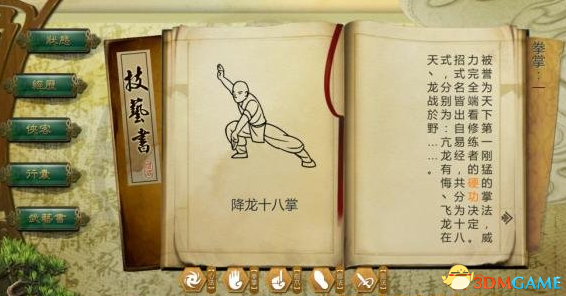 狀態
經歷
俠客
行囊
武藝書
技藝書
降龙十八掌
拳掌：一
被誉为天下第一刚猛的掌法，威
力完全端看修练者的硬功决定。
招式名皆出自易经，共分为十八
式，分别为：亢龙有悔、飞龙在
天、龙战於野……。
3DMGAME